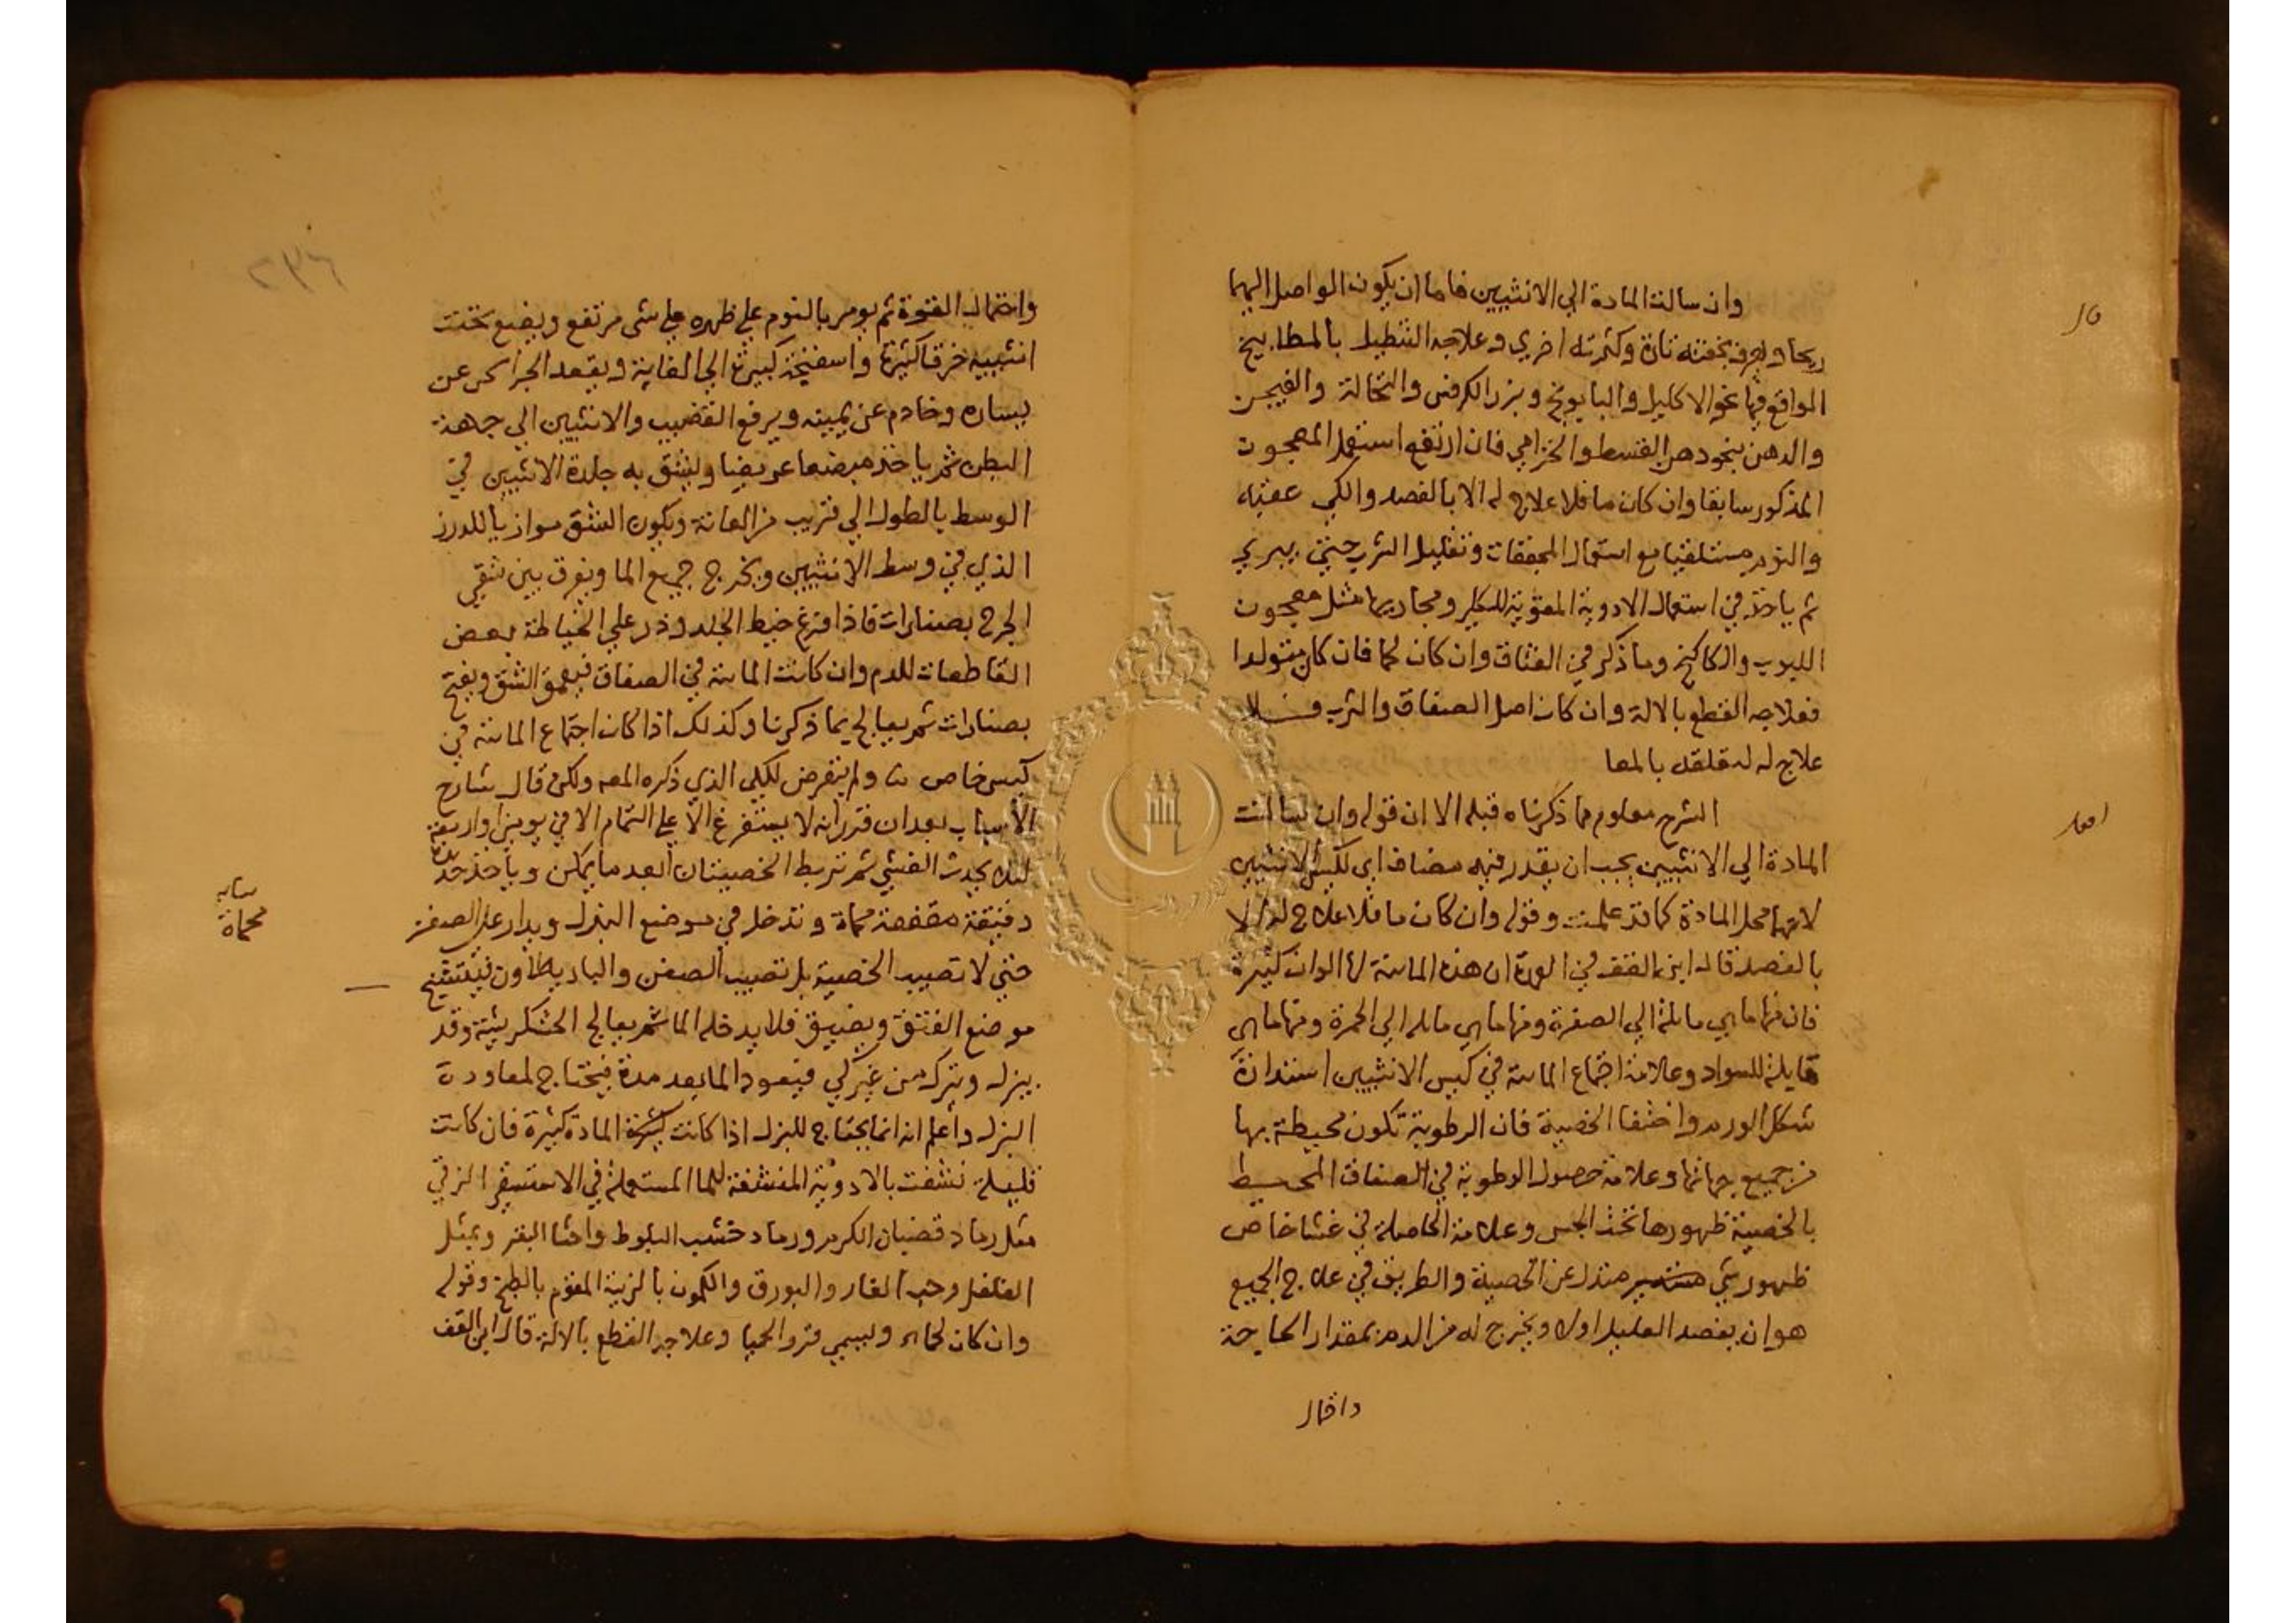 قال
وان سالت المادة الي الانثيين فاما ان يكون الواصل اليهما
ريحا ويعرف بخفته تارة وكثرته اخري وعلاجه التنطيل بالمطابيخ
الواقع فيها نحو الاكليل والبابونج وبزر الكرفس والنخالة والفيجن
والدهن بنحو دهن القسط والخزامي فان ارتفع استعمل المعجون
المذكور سابقا وان كان ما فلا علاج له الا بالفصد والكي عقبه
والنوم مستلقيا مع استعمال المجففات وتقليل الشرب حتي يبري
ثم ياخذ في استعمال الادوية المقوية للكلي ومجاريها مثل معجون
اللبوب والكاكنج وما ذكر في الفتاق وان كان لحما فان كان متولدا
فعلاجه القطع بالالة وان كان اصل الصفاق والثرب فلا
علاج له لتعلقه بالمعا
اقول
الشرح معلوم مما ذكرناه قبله الا ان قوله وان سالت
المادة الي الانثيين يجب ان يقدر فيه مضاف اي لكيس الانثيين
لانهما محل المادة كما قد علمت وقوله وان كان ما فلا علاج له الا
بالفصد قال ابن القف في العمدة ان هذه المائية لها الوان كثيرة
فان منها ما هي مائلة الي الصفرة ومنها ما هي مائلة الي الحمرة ومنها ما هي
مايلة للسواد وعلامة اجتماع المائية في كيس الانثيين استدارة
شكل الورم واختفا الخصية فان الرطوبة تكون محيطة بها
من جميع جهاتها وعلامة حصول الرطوبة في الصفاق المحيط
بالخصية ظهورها تحت الجس وعلامة الحاصلة في غشا خاص
ظهور شي مستدير متدل عن الخصية والطريق في علاج الجميع
هو ان يفصد العليل اولا ويخرج له من الدم بمقدار الحاجة
واحتمال
٢٩٦
واحتمال القوة ثم يومر بالنوم علي ظهره علي شي مرتفع ويضع تحت
انثييه خرقا كثيرة واسفنجة كبيرة الي الغاية ويقعد الجرايحي عن
يساره وخادم عن يمينه ويرفع القضيب والانثيين الي جهة
البطن ثم ياخذ مبضعا عريضا ويشق به جلدة الانثيين في
الوسط بالطول الي قريب من العانة ويكون الشق موازيا للدرز
الذي في وسط الانثيين ويخرج جميع الما ويفرق بين شقي
الجرح بصنارات فاذا فرغ خيط الجلد وذر علي الخياطة بعض
القاطعات للدم وان كانت المائية في الصفاق فيعمق الشق ويفتح
بصنارات ثم يعالج بما ذكرنا وكذلك اذا كان اجتماع المائية في
كيس خاص ولم يتعرض للكي الذي ذكره المص ولكن قال شارح
الاسباب بعد ان قرر انه لا يستفرغ الا علي التمام الا في يومين او اربعة
ليلا يحدث الغشي ثم تربط الخصيتان ابعد ما يمكن وياخذ حديدة
دقيقة مقفعة محماة وتدخل في موضع البزل ويدار علي الصفن
حتي لا تصيب الخصية بل تصيب الصفن والباريطاون فيتشنج
موضع الفتق ويضيق فلا يدخله الما ثم يعالج الخشكريشة وقد
يبزل ويترك من غير كي فيعود الما بعد مدة فيحتاج لمعاودة
البزل واعلم انه انما يحتاج للبزل اذا كانت المادة كثيرة فان كانت
قليلة نشفت بالادوية المنشفة للما المستعملة في الاستسقا الزقي
مثل رماد قضبان الكرم ورماد خشب البلوط واخثا البقر وبمثل
الفلفل وحب الغار والبورق والكمون بالزيت المقوم بالطبخ وقوله
وان كان لحما ويسمي قرو اللحم وعلاجه القطع بالالة قال ابن القف
محماة